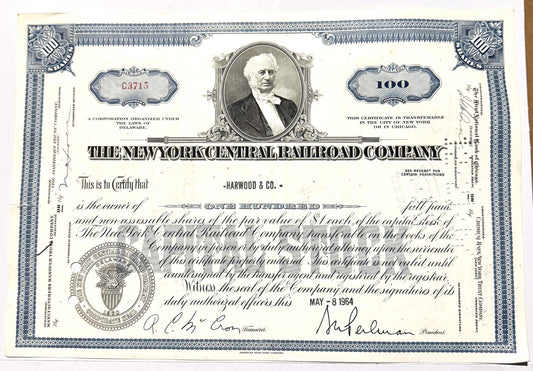 100
SHARES
100
SHARES
C3715
100
A CORPORATION ORGANIZED UNDER
THE LAWS OF
DELAWARE.
THIS CERTIFICATE IS TRANSFERABLE
IN THE CITY OF NEW YORK
OR IN CHICAGO.
THE NEW YORK CENTRAL RAILROAD COMPANY
SEE REVERSE FOR
CERTAIN DEFINITIONS
This is to Certify that
-HARWOOD & CO.-
is the owner of
ONE HUNDRED
full paid
and non-assessable shares of the par value of $1 each, of the capital stock of
The New York Central Railroad Company, transferable on the books of the
Company in person or by duly authorized attorney upon the surrender
of this certificate properly endorsed. This certificate is not valid until
countersigned by the transfer agent and registered by the registrar.
Witness the seal of the Company and the signatures of its
duly authorized officers this
MAY -8 1964
Treasurer.
President.
CAPITAL STOCK
MANUFACTURERS HANOVER TRUST COMPANY,
OR
THE NORTHERN TRUST COMPANY